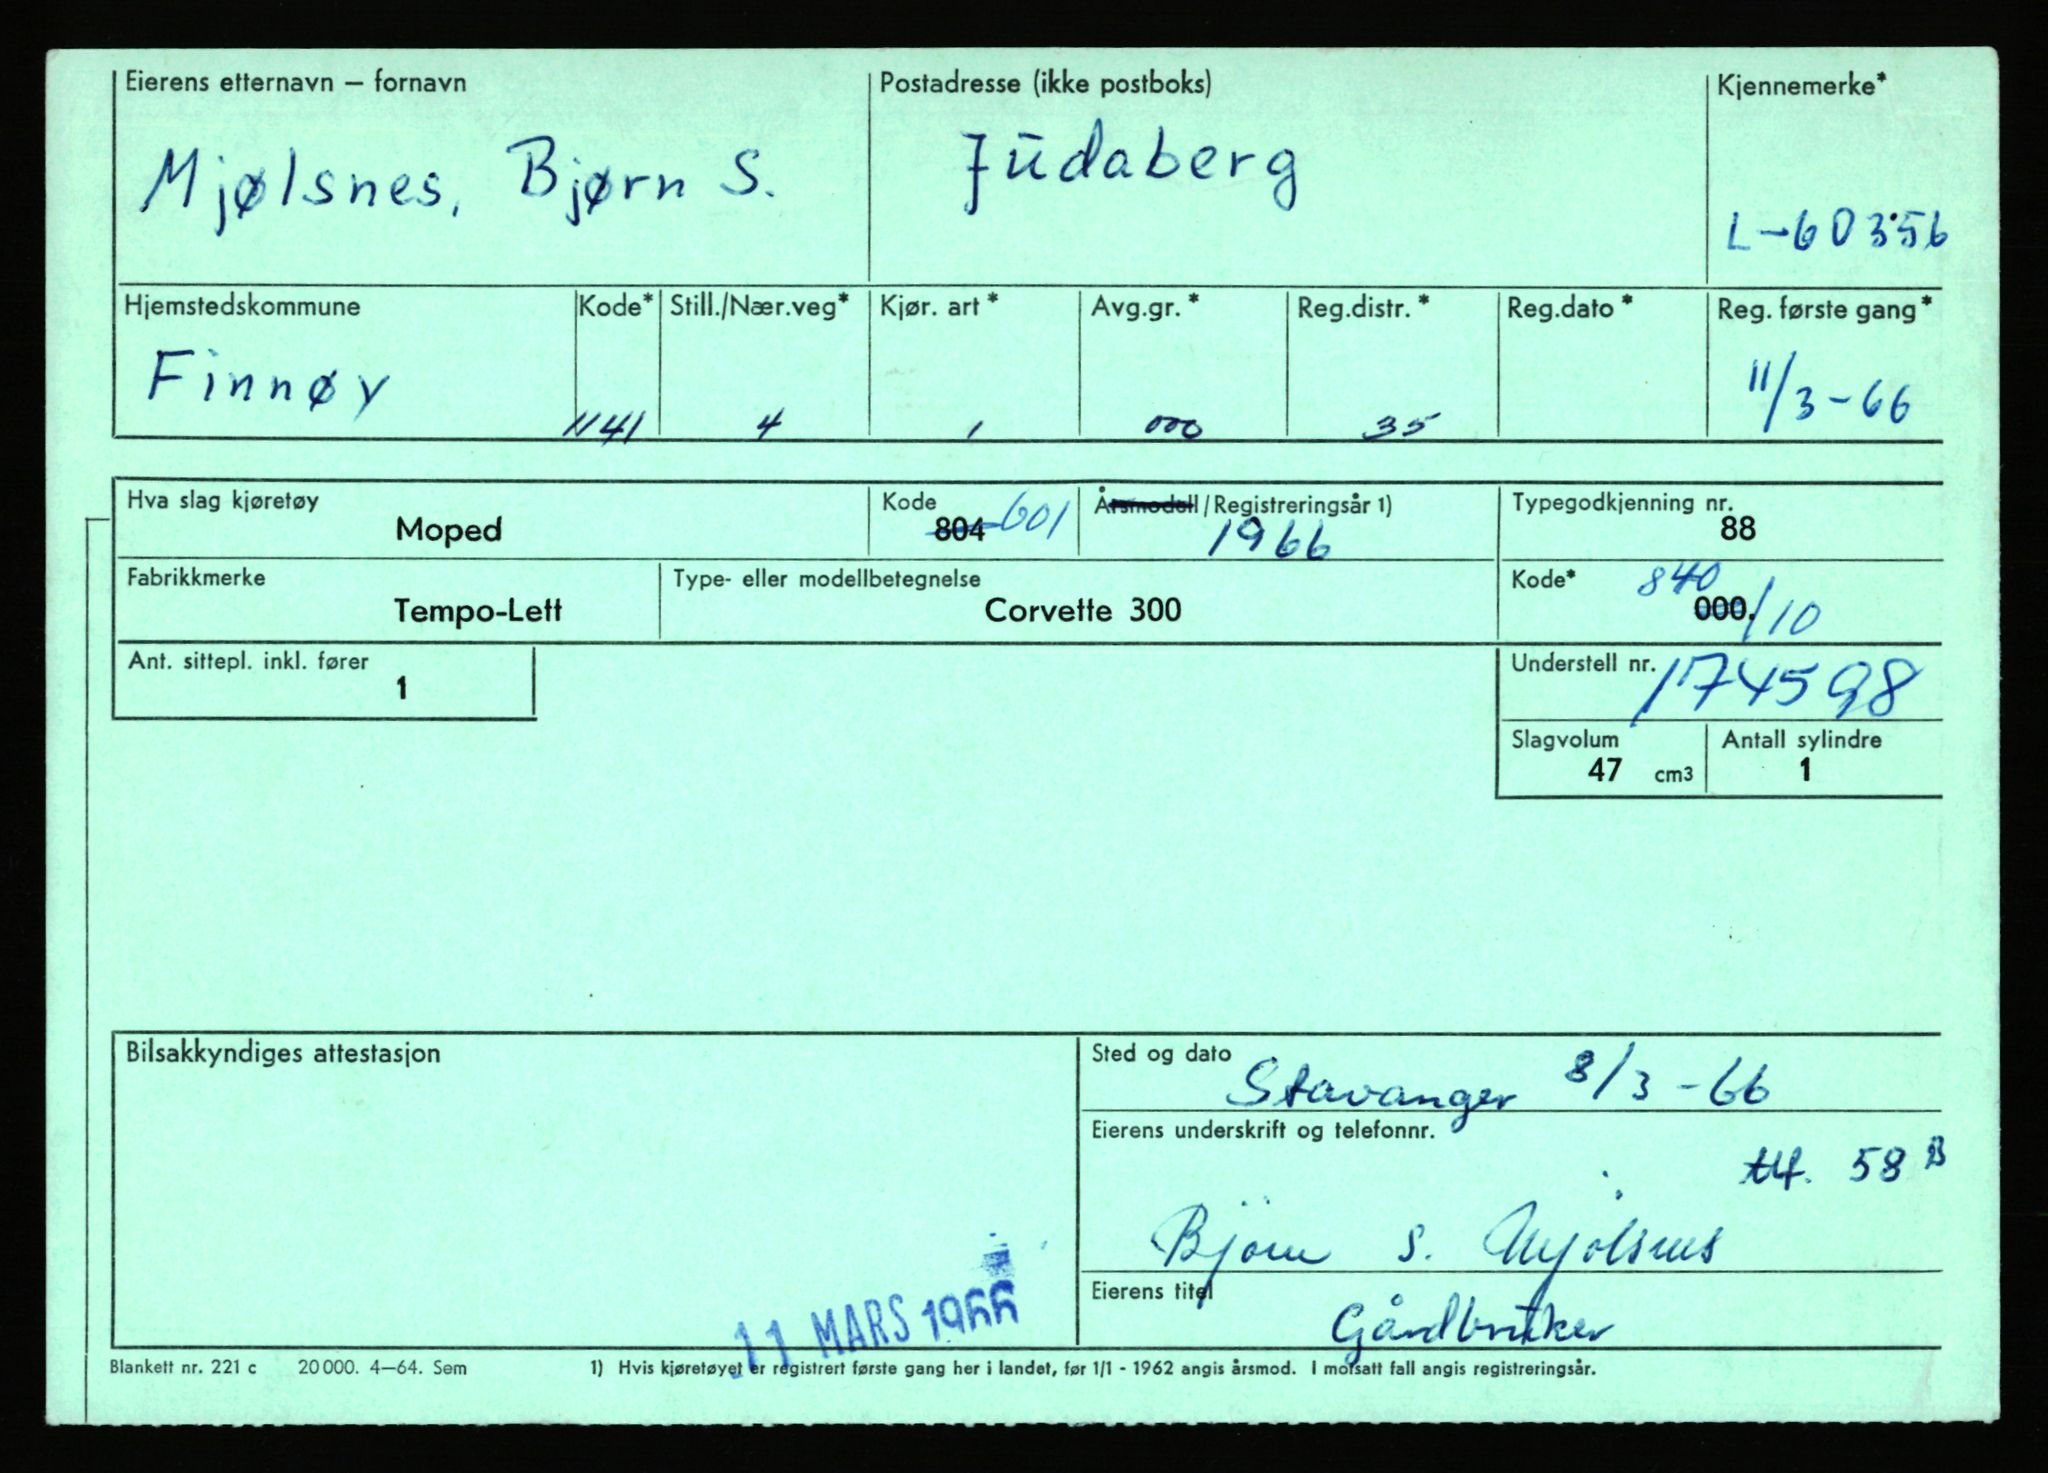 Eierens etternavn – fornavn Postadresse (ikke postboks) Kjennemerke*
Mjølsnes, Bjørn S. Judaberg
L-60356
Hjemstedskommune Kode* Still./Nær.veg* Kjør. art* Avg.gr.* Reg.distr.* Reg.dato* Reg. første gang*
Finnøy 1141 4 1 000 35 11/3-66
Hva slag kjøretøy Kode Årsmodell/Registreringsår 1) Typegodkjenning nr.
Moped 804 601 1966 88
Fabrikkmerke Type- eller modellbetegnelse Kode* 840
Tempo-Lett Corvette 300 000. /10
Ant. sittepl. inkl. fører Understell nr.
1 1174598
Slagvolum Antall sylindre
47 cm3 1
Bilsakkyndiges attestasjon Sted og dato
Stavanger 8/3-66
Eierens underskrift og telefonnr.
tlf. 58 B
Bjørn S. Mjølsnes
Eierens titel
Gårdbruker
11 MARS 1966
Blankett nr. 221 c 20 000. 4–64. Sem 1) Hvis kjøretøyet er registrert første gang her i landet, før 1/1 - 1962 angis årsmod. I motsatt fall angis registreringsår.